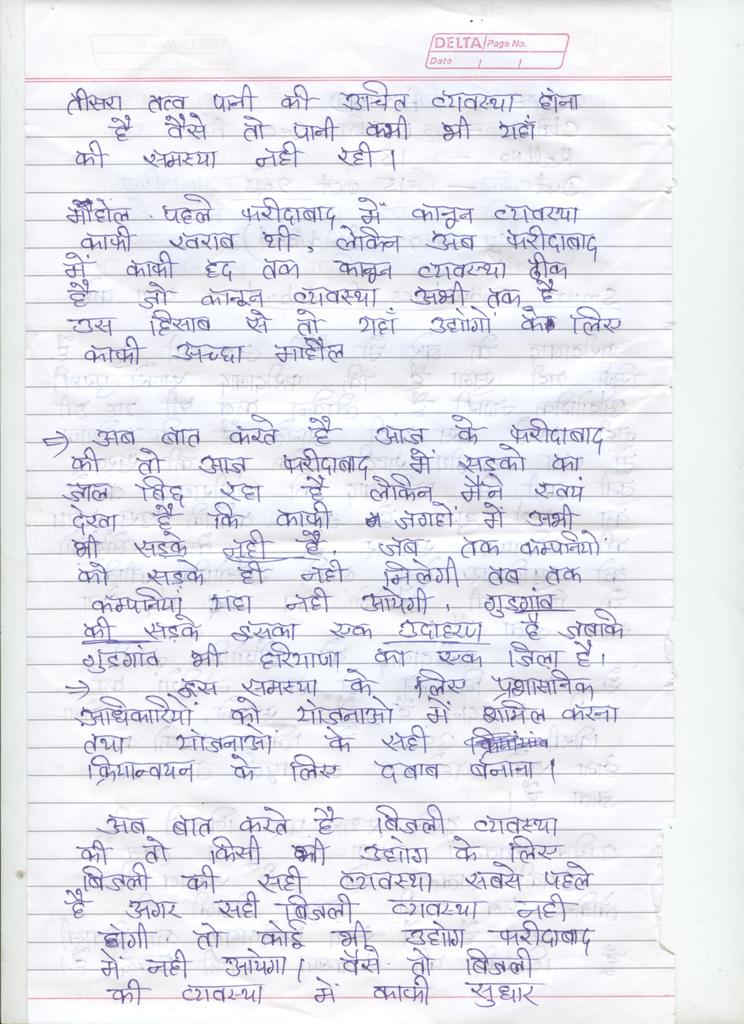 DELTA Page No.
Date
तीसरा तत्व पानी की उचित व्यवस्था होना
है वैसे तो पानी कभी भी यहाँ
की समस्या नही रही।
माैहोल पहले फरीदाबाद में कानून व्यवस्था
काफी खराब थी, लेकिन अब फरीदाबाद
में काफी हद तक कानून व्यवस्था ठीक
है जो कानून व्यवस्था अभी तक है
उस हिसाब से तो यहाँ उद्योगों के लिए
काफी अच्छा माहौल
⇒ अब बात करते है आज के फरीदाबाद
की तो आज फरीदाबाद में सड़को का
जाल बिछ रहा है लेकिन मैंने स्वयं
देखा है कि काफी जगहों में अभी
भी सड़के नही है. जब तक कम्पनियों
को सड़के ही नही मिलेगी तब तक
कम्पनियां यहा नही आयेगी, गुडगांव
की सड़के इसका एक उदाहरण है जबकि
गुडगांव भी हरियाणा का एक जिला है।
⇒ इस समस्या के लिए प्रशासनिक
अधिकारियों को योजनाओ में शामिल करना
तथा योजनाओं के सही
क्रियान्वयन के लिए दबाब बनाना।
अब बात करते है बिजली व्यवस्था
की तो किसी भी उद्योग के लिए
बिजली की सही व्यवस्था सबसे पहले
है अगर सही बिजली व्यवस्था नही
होगी तो कोई भी उद्योग फरीदाबाद
में नही आयेगा। वैसे तो बिजली
की व्यवस्था में काफी सुधार